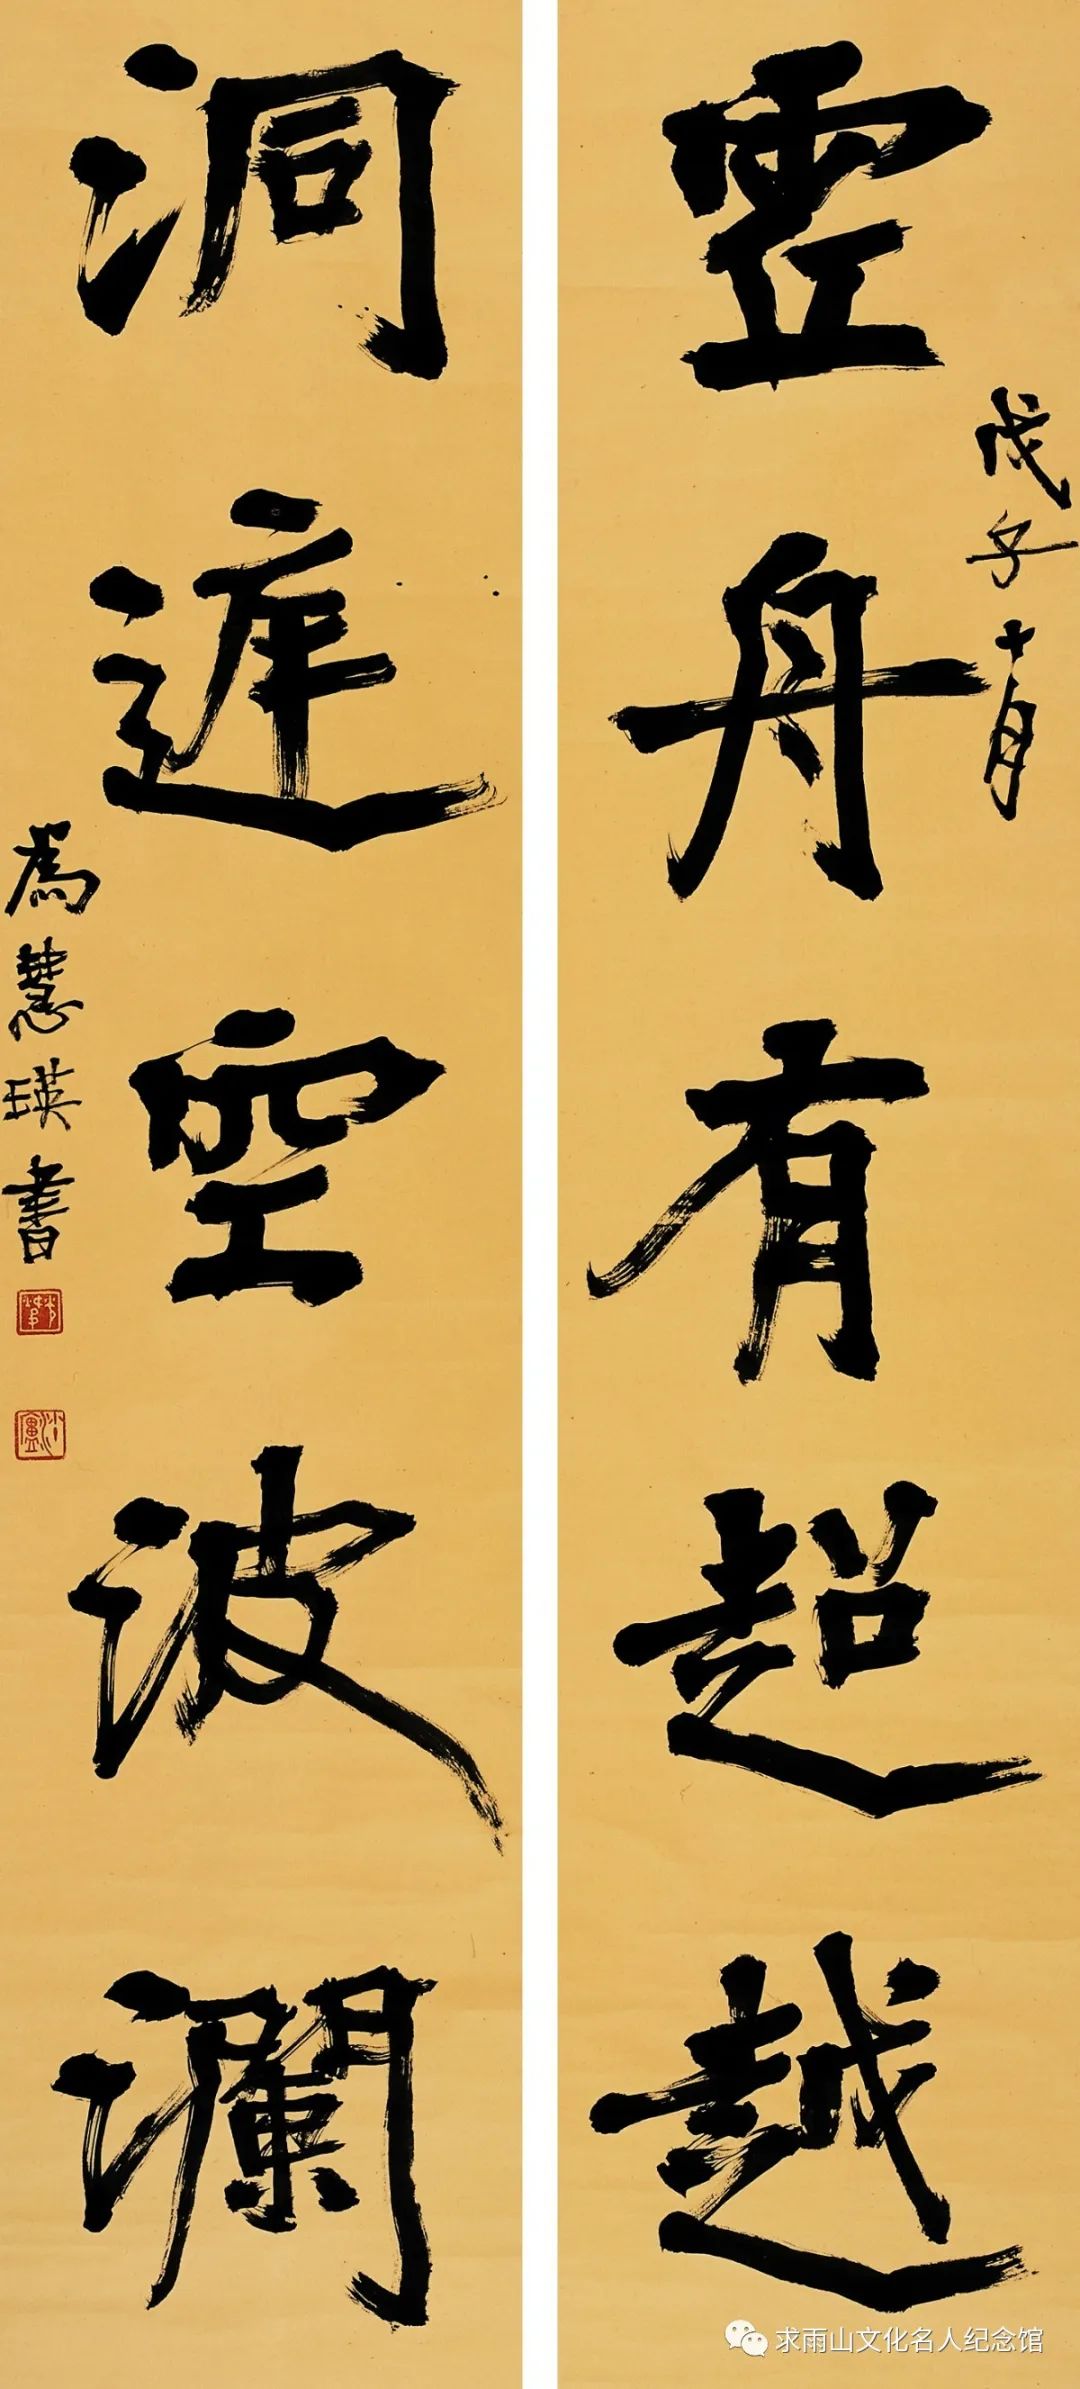 戊子十月
虛舟有超越
洞庭空波瀾
為慧瑛書
求雨山文化名人纪念馆